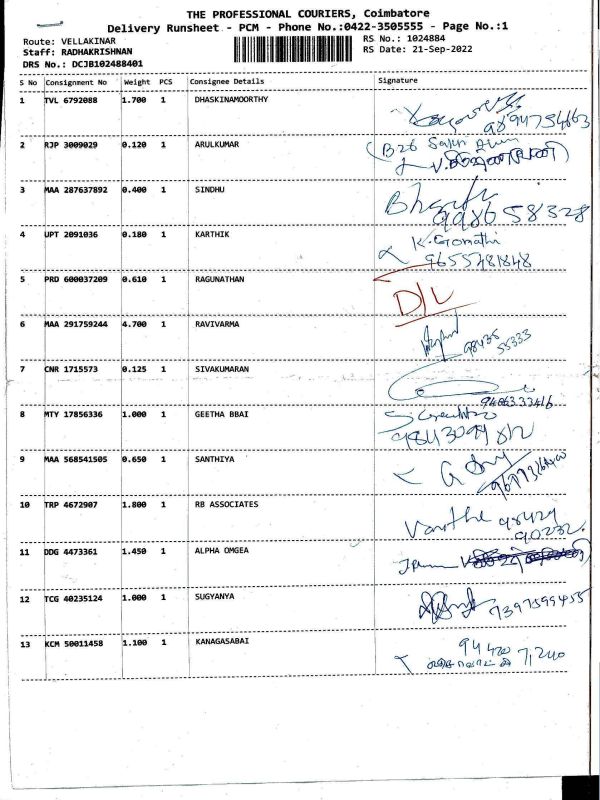 THE PROFESSIONAL COURIERS, Coimbatore
Delivery Runsheet - PCM - Phone No.:0422-3505555 - Page No.:1
Route: VELLAKINAR
RS No.: 1024884
Staff: RADHAKRISHNAN
RS Date: 21-Sep-2022
DRS No.: DCJB102488401
S No Consignment No Weight PCS Consignee Details Signature
1 TVL 6792088 1.700 1 DHASKINAMOORTHY
9894754663
2 RJP 3009029 0.120 1 ARULKUMAR
B26
3 MAA 287637892 0.400 1 SINDHU
998658328
4 UPT 2091036 0.180 1 KARTHIK
K. Gomathi
9655481848
5 PRD 600037209 0.610 1 RAGUNATHAN
D/L
6 MAA 291759244 4.700 1 RAVIVARMA
98435
55333
7 CNR 1715573 0.125 1 SIVAKUMARAN
9486333416
8 MTY 17856336 1.000 1 GEETHA BBAI
9 MAA 568541505 0.650 1 SANTHIYA
10 TRP 4672907 1.800 1 RB ASSOCIATES
98429
90232
11 DDG 4473361 1.450 1 ALPHA OMGEA
12 TCG 40235124 1.000 1 SUGYANYA
7397599455
13 KCM 50011458 1.100 1 KANAGASABAI
94420
7,240